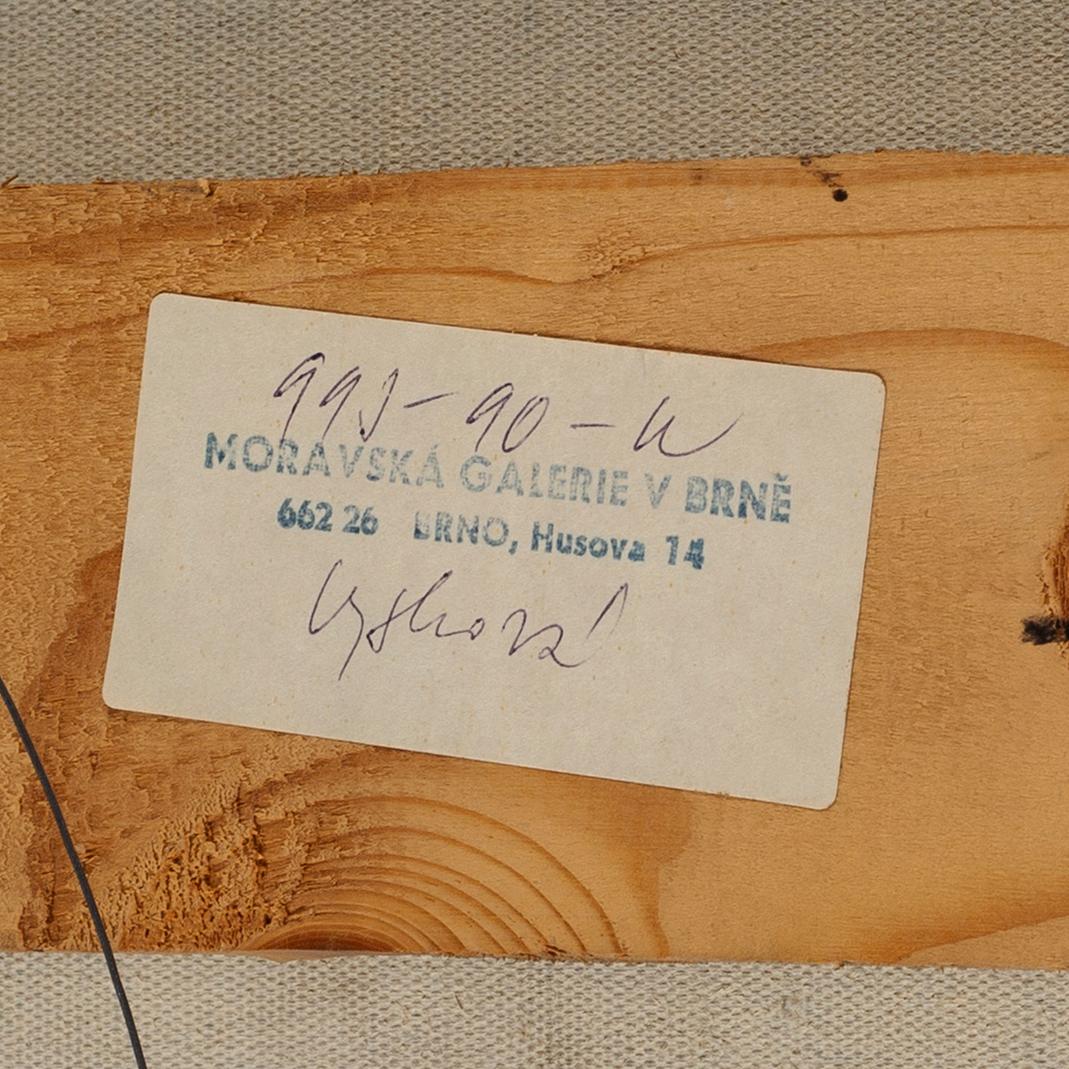 993-90-U
MORAVSKÁ GALERIE V BRNĚ
662 26 BRNO, Husova 14
Vyskova!